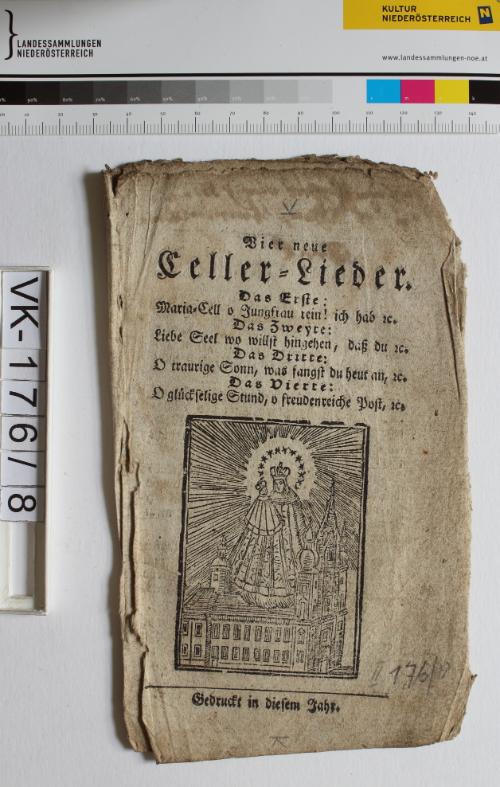 LANDESSAMMLUNGEN
NIEDERÖSTERREICH
KULTUR
NIEDERÖSTERREICH
N
www.landessammlungen-noe.at
VK-176/8
Vier neue
Celler-Lieder.
Das Erste:
Maria-Cell o Jungfrau rein! ich hab ꝛc.
Das Zweyte:
Liebe Seel wo willst hingehen, daß du ꝛc.
Das Dritte:
O traurige Sonn, was fangst du heut an, ꝛc.
Das Vierte:
O glückselige Stund, o freudenreiche Post, ꝛc.
II 176/8
Gedruckt in diesem Jahr.